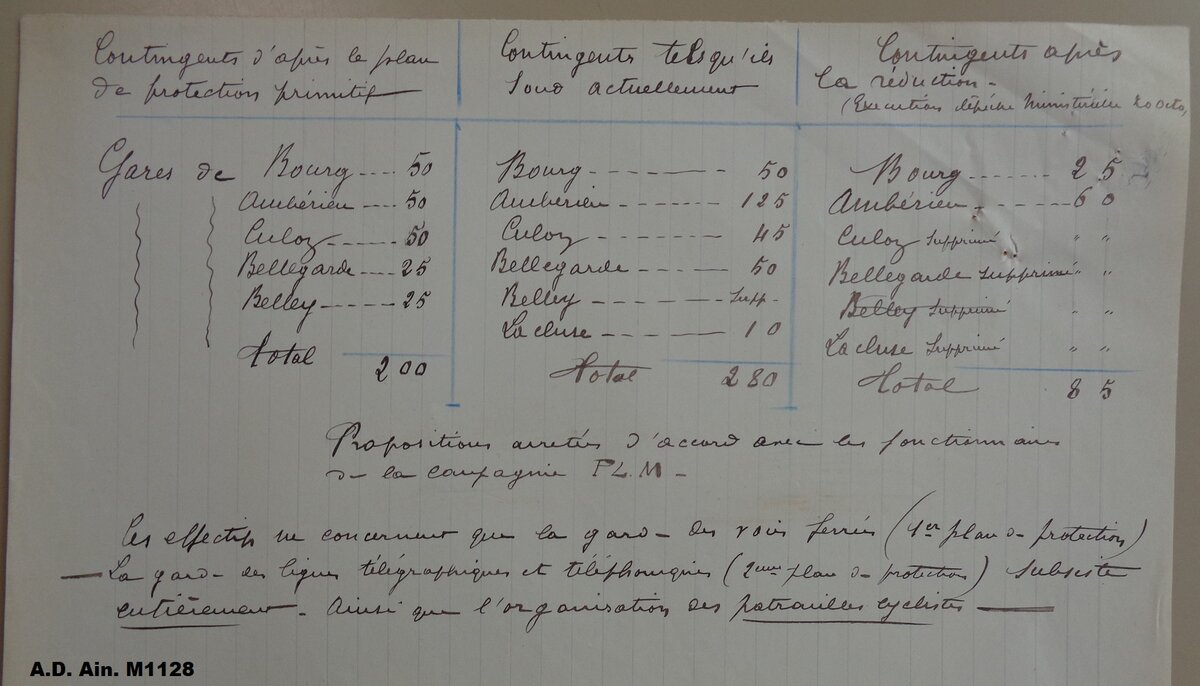 Contingents d'après le plan
de protection primitif
Gares de Bourg ---- 50
Ambérieu ---- 50
Culoz ------ 50
Bellegarde --- 25
Belley ------ 25
Total 200
Contingents tels qu'ils
sont actuellement
Bourg -------- 50
Ambérieu -------- 125
Culoz -------- 45
Bellegarde -------- 50
Belley -------- Supp.
La cluse -------- 10
Total 280
Contingents après
la réduction -
(Exécution dépêche Ministérielle 20 octo
Bourg ------ 25
Ambérieu ------ 60
Culoz supprimé " "
Bellegarde supprimé " "
Belley supprimé " "
La cluse supprimé " "
Total 85
Propositions arretés d'accord avec les fonctionnaires
de la compagnie P.L.M -
Ces effectifs ne concernent que la garde des voies ferrées (1er plan de protection)
— La garde des lignes télégraphiques et téléphoniques (2eme plan de protection) subsiste
entièrement - Ainsi que l'organisation des patrouilles cyclistes —
A.D. Ain. M1128